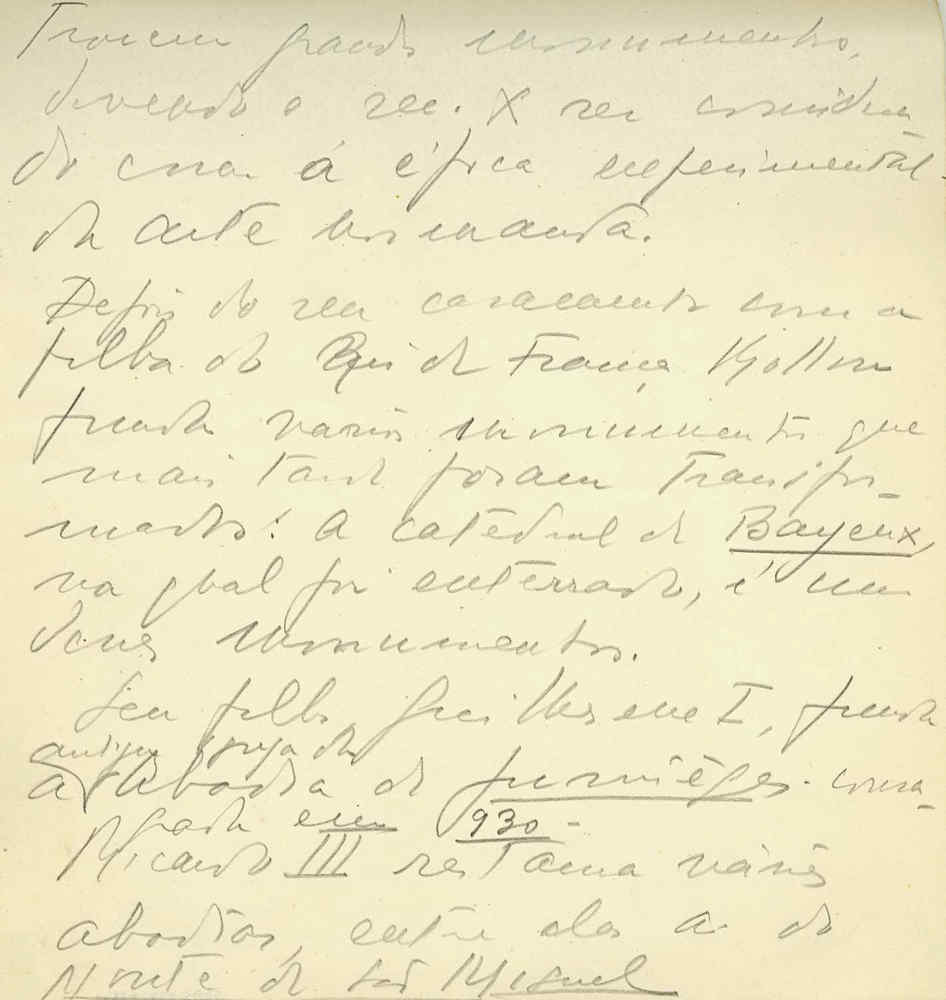 grandes monumentos,
devendo o sec. X ser considera
do como a época experimental
da arte normanda.
Depois do seu casamento com a
filha do Rei de França, Rollon
funda varios monumentos que
mais tarde foram transfor-
mados: A catedral de Bayeux,
na qual foi enterrado, é um
desses monumentos.
Seu filho, Guilherme I, funda
antiga igreja da
a Abadia de Jumièges - consa-
grada em 930 -
Ricardo III restaura vários
abadias, entre elas a do
Monte de São Miguel